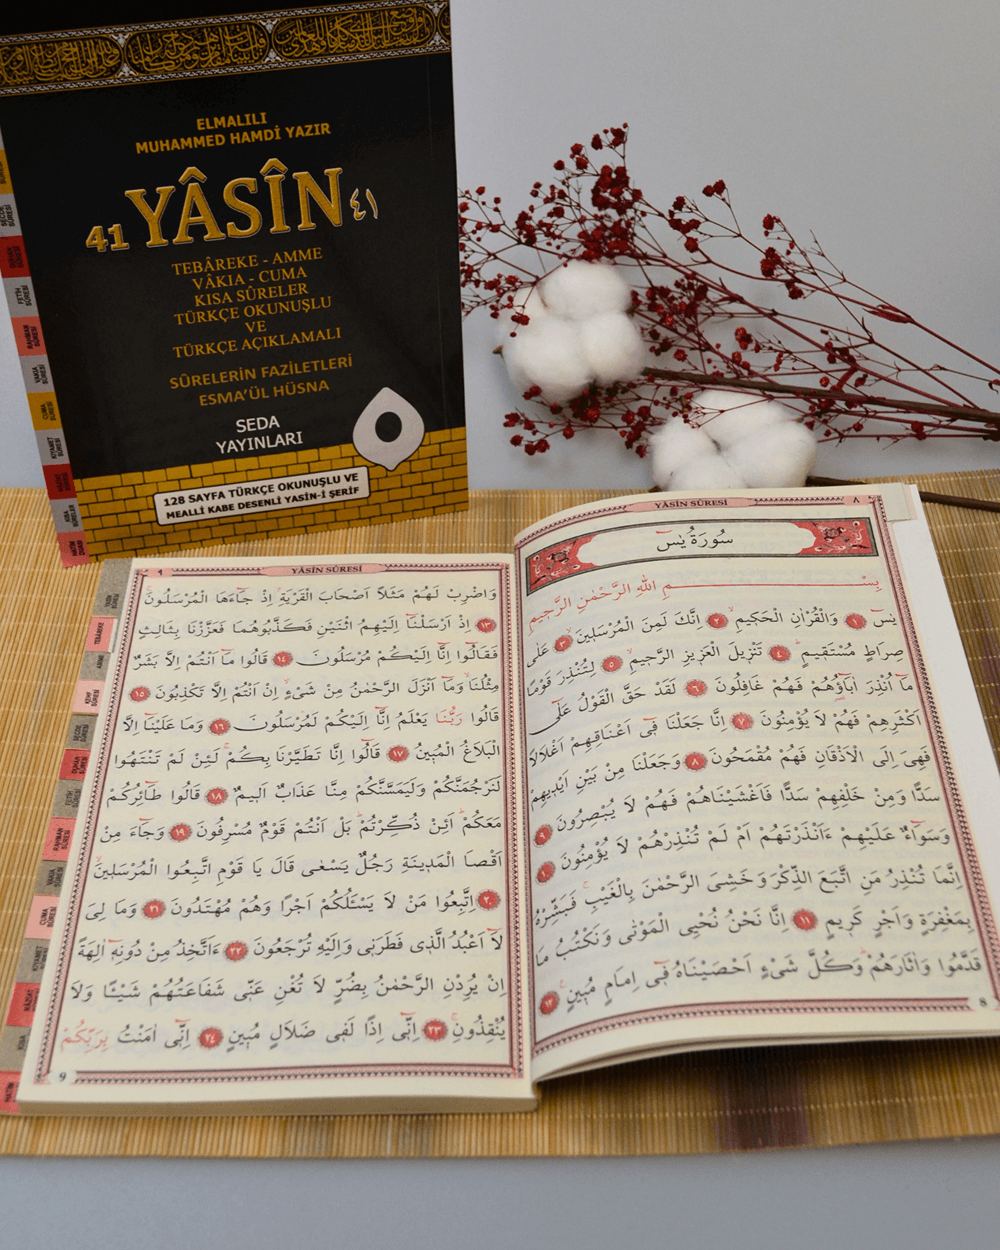 ELMALILI
MUHAMMED HAMDİ YAZIR
41 YÂSÎN ٤١
TEBÂREKE - AMME
VÂKIA - CUMA
KISA SÛRELER
TÜRKÇE OKUNUŞLU
VE
TÜRKÇE AÇIKLAMALI
SÛRELERİN FAZİLETLERİ
ESMA’ÜL HÜSNA
SEDA
YAYINLARI
128 SAYFA TÜRKÇE OKUNUŞLU VE
MEALLİ KABE DESENLİ YASİN-İ ŞERİF
FETİH SÛRESİ
RAHMAN SÛRESİ
VAKIA SÛRESİ
CUMA SÛRESİ
KIYAMET SÛRESİ
YÂSÎN SÛRESİ ٨
سُورَةُ يٰسٓ
بِسْــمِ اللهِ الرَّحْمٰنِ الرَّحِيمِ
يٰسٓ ﴿١﴾ وَالْقُرْاٰنِ الْحَكِيمِ ﴿٢﴾ اِنَّكَ لَمِنَ الْمُرْسَلِينَ ﴿٣﴾ عَلٰى
صِرَاطٍ مُسْتَقِيمٍ ﴿٤﴾ تَنْزِيلَ الْعَزِيزِ الرَّحِيمِ ﴿٥﴾ لِتُنْذِرَ قَوْمًا
مَٓا اُنْذِرَ اٰبَٓاؤُ۬هُمْ فَهُمْ غَافِلُونَ ﴿٦﴾ لَقَدْ حَقَّ الْقَوْلُ عَلٰٓى
اَكْثَرِهِمْ فَهُمْ لَا يُؤْمِنُونَ ﴿٧﴾ اِنَّا جَعَلْنَا فٓى اَعْنَاقِهِمْ اَغْلَالًا
فَهِىَ اِلَى الْاَذْقَانِ فَهُمْ مُقْمَحُونَ ﴿٨﴾ وَجَعَلْنَا مِنْ بَيْنِ اَيْدِيهِمْ
سَدًّا وَمِنْ خَلْفِهِمْ سَدًّا فَاَغْشَيْنَاهُمْ فَهُمْ لَا يُبْصِرُونَ ﴿٩﴾
وَسَوَٓاءٌ عَلَيْهِمْ ءَاَنْذَرْتَهُمْ اَمْ لَمْ تُنْذِرْهُمْ لَا يُؤْمِنُونَ ﴿١٠﴾
اِنَّمَا تُنْذِرُ مَنِ اتَّبَعَ الذِّكْرَ وَخَشِىَ الرَّحْمٰنَ بِالْغَيْبِ فَبَشِّرْهُ
بِمَغْفِرَةٍ وَاَجْرٍ كَرِيمٍ ﴿١١﴾ اِنَّا نَحْنُ نُحْيِى الْمَوْتٰى وَنَكْتُبُ مَا
قَدَّمُوا وَاٰثَارَهُمْ وَكُلَّ شَىْءٍ اَحْصَيْنَاهُ فٓى اِمَامٍ مُبِينٍ ﴿١٢﴾
8
٩ YÂSÎN SÛRESİ
وَاضْرِبْ لَهُمْ مَثَلًا اَصْحَابَ الْقَرْيَةِ اِذْ جَٓاءَهَا الْمُرْسَلُونَ
﴿١٣﴾ اِذْ اَرْسَلْنَٓا اِلَيْهِمُ اثْنَيْنِ فَكَذَّبُوهُمَا فَعَزَّزْنَا بِثَالِثٍ
فَقَالُٓوا اِنَّٓا اِلَيْكُمْ مُرْسَلُونَ ﴿١٤﴾ قَالُوا مَٓا اَنْتُمْ اِلَّا بَشَرٌ
مِثْلُنَا وَمَٓا اَنْزَلَ الرَّحْمٰنُ مِنْ شَىْءٍ اِنْ اَنْتُمْ اِلَّا تَكْذِبُونَ ﴿١٥﴾
قَالُوا رَبُّنَا يَعْلَمُ اِنَّٓا اِلَيْكُمْ لَمُرْسَلُونَ ﴿١٦﴾ وَمَا عَلَيْنَٓا اِلَّا
الْبَلَاغُ الْمُبِينُ ﴿١٧﴾ قَالُٓوا اِنَّا تَطَيَّرْنَا بِكُمْ لَئِنْ لَمْ تَنْتَهُوا
لَنَرْجُمَنَّكُمْ وَلَيَمَسَّنَّكُمْ مِنَّا عَذَابٌ اَلِيمٌ ﴿١٨﴾ قَالُوا طَٓائِرُكُمْ
مَعَكُمْ اَئِنْ ذُكِّرْتُمْ بَلْ اَنْتُمْ قَوْمٌ مُسْرِفُونَ ﴿١٩﴾ وَجَٓاءَ مِنْ
اَقْصَا الْمَدِينَةِ رَجُلٌ يَسْعٰى قَالَ يَا قَوْمِ اتَّبِعُوا الْمُرْسَلِينَ
﴿٢٠﴾ اِتَّبِعُوا مَنْ لَا يَسْـَٔلُكُمْ اَجْرًا وَهُمْ مُهْتَدُونَ ﴿٢١﴾ وَمَا لِىَ
لَٓا اَعْبُدُ الَّذٖى فَطَرَنٖى وَاِلَيْهِ تُرْجَعُونَ ﴿٢٢﴾ ءَاَتَّخِذُ مِنْ دُونِهٖٓ اٰلِهَةً
اِنْ يُرِدْنِ الرَّحْمٰنُ بِضُرٍّ لَا تُغْنِ عَنّٖى شَفَاعَتُهُمْ شَيْـًٔا وَلَا
يُنْقِذُونِ ﴿٢٣﴾ اِنّٖٓى اِذًا لَفٖى ضَلَالٍ مُبِينٍ ﴿٢٤﴾ اِنّٖٓى اٰمَنْتُ بِرَبِّكُمْ
9